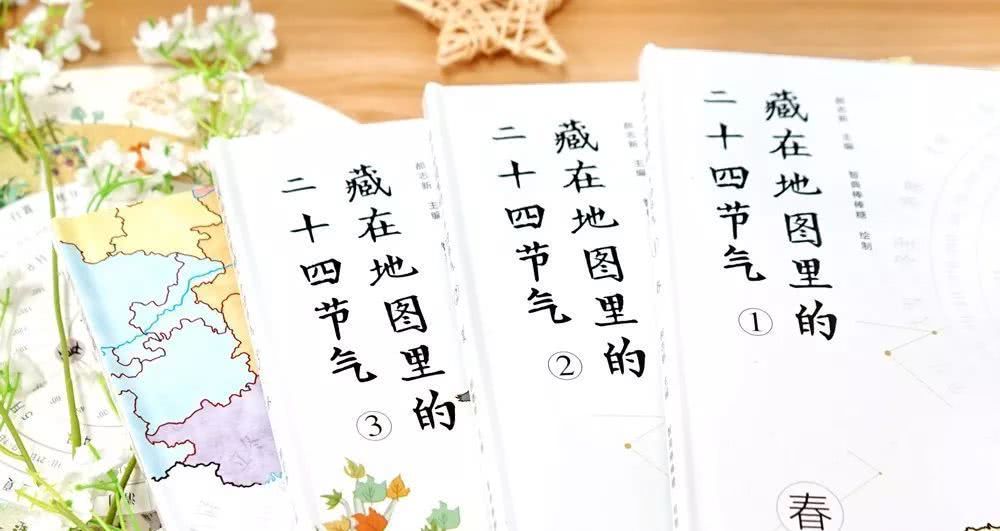 藏在地图里的
二十四节气
①
郝志新 主编
智趣棒棒糖 绘制
春
藏在地图里的
二十四节气
②
郝志新 主编
藏在地图里的
二十四节气
③
郝志新 主编